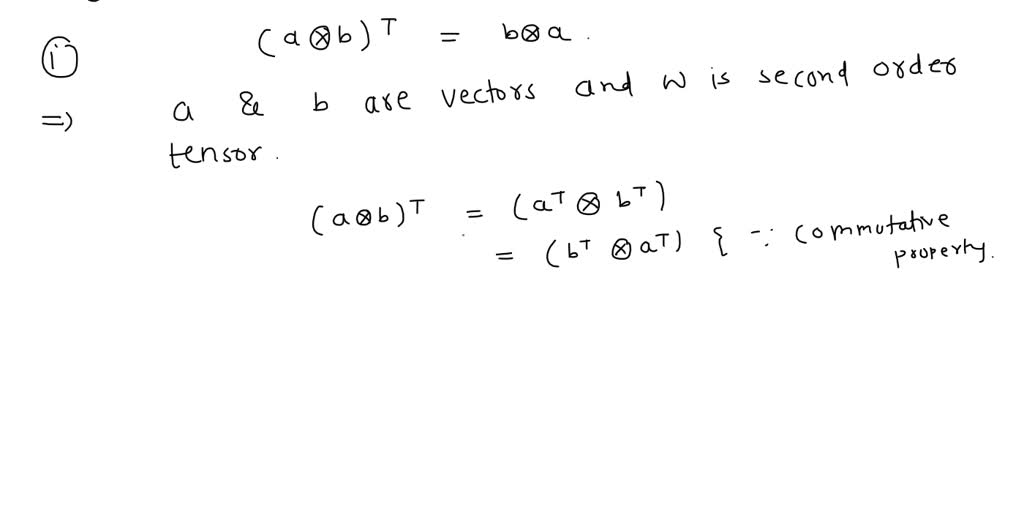 (i) (a⊗b)ᵀ = b⊗a.
⇒ a & b are vectors and W is second order
tensor.
(a⊗b)ᵀ = (aᵀ ⊗ bᵀ)
= (bᵀ ⊗ aᵀ) { ∵ commutative
property.